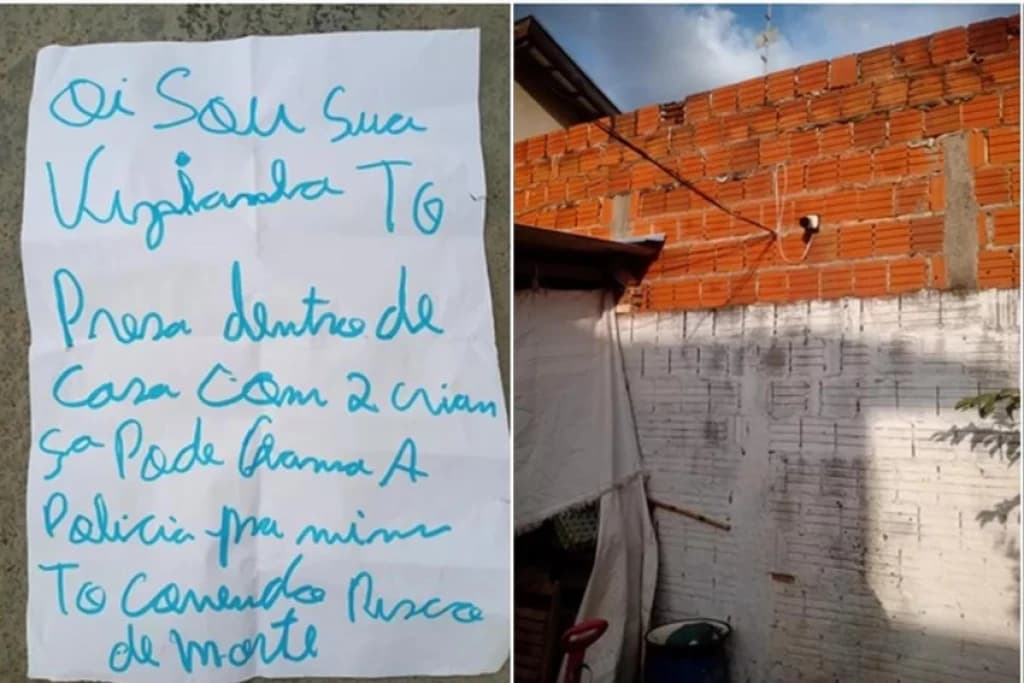 Oi Sou Sua
Vizinha TO
Presa dentro de
Casa Com 2 crian
ça Pode Chama A
Policia pra mim
To Correndo Risco
de morte